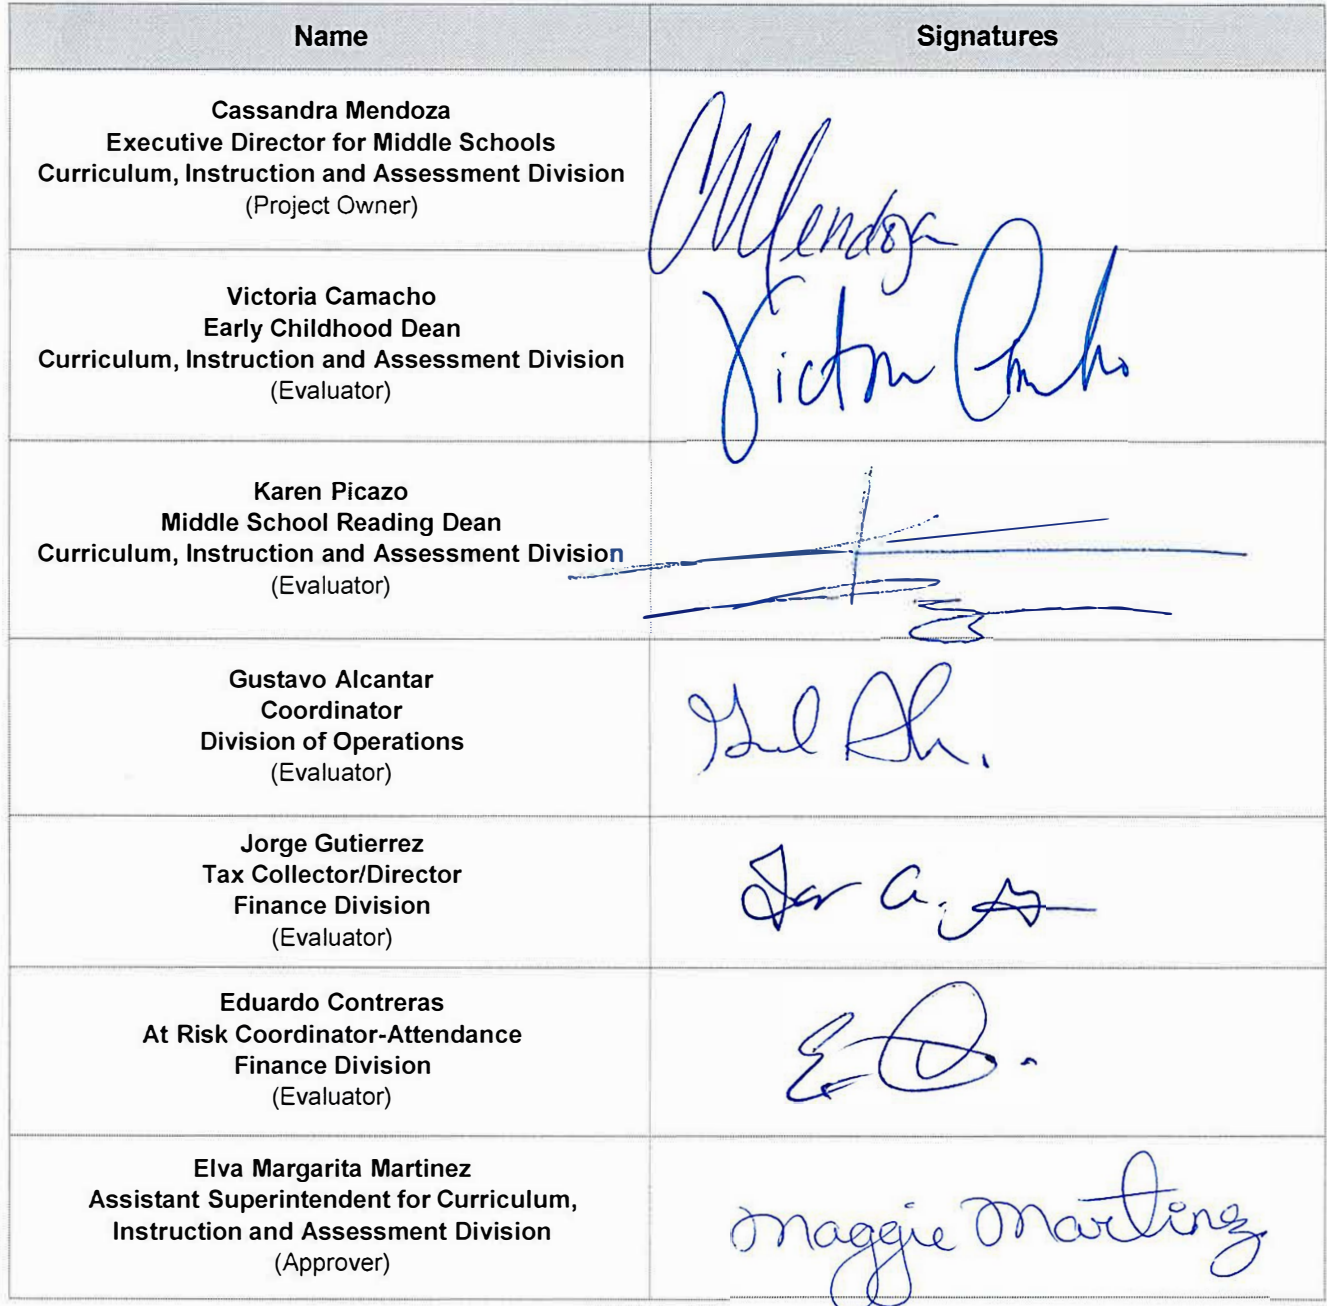 Name
Signatures
Cassandra Mendoza
Executive Director for Middle Schools
Curriculum, Instruction and Assessment Division
(Project Owner)
CMendoza
Victoria Camacho
Early Childhood Dean
Curriculum, Instruction and Assessment Division
(Evaluator)
Karen Picazo
Middle School Reading Dean
Curriculum, Instruction and Assessment Division
(Evaluator)
Gustavo Alcantar
Coordinator
Division of Operations
(Evaluator)
Jorge Gutierrez
Tax Collector/Director
Finance Division
(Evaluator)
Eduardo Contreras
At Risk Coordinator-Attendance
Finance Division
(Evaluator)
Elva Margarita Martinez
Assistant Superintendent for Curriculum,
Instruction and Assessment Division
(Approver)
Maggie Martinez